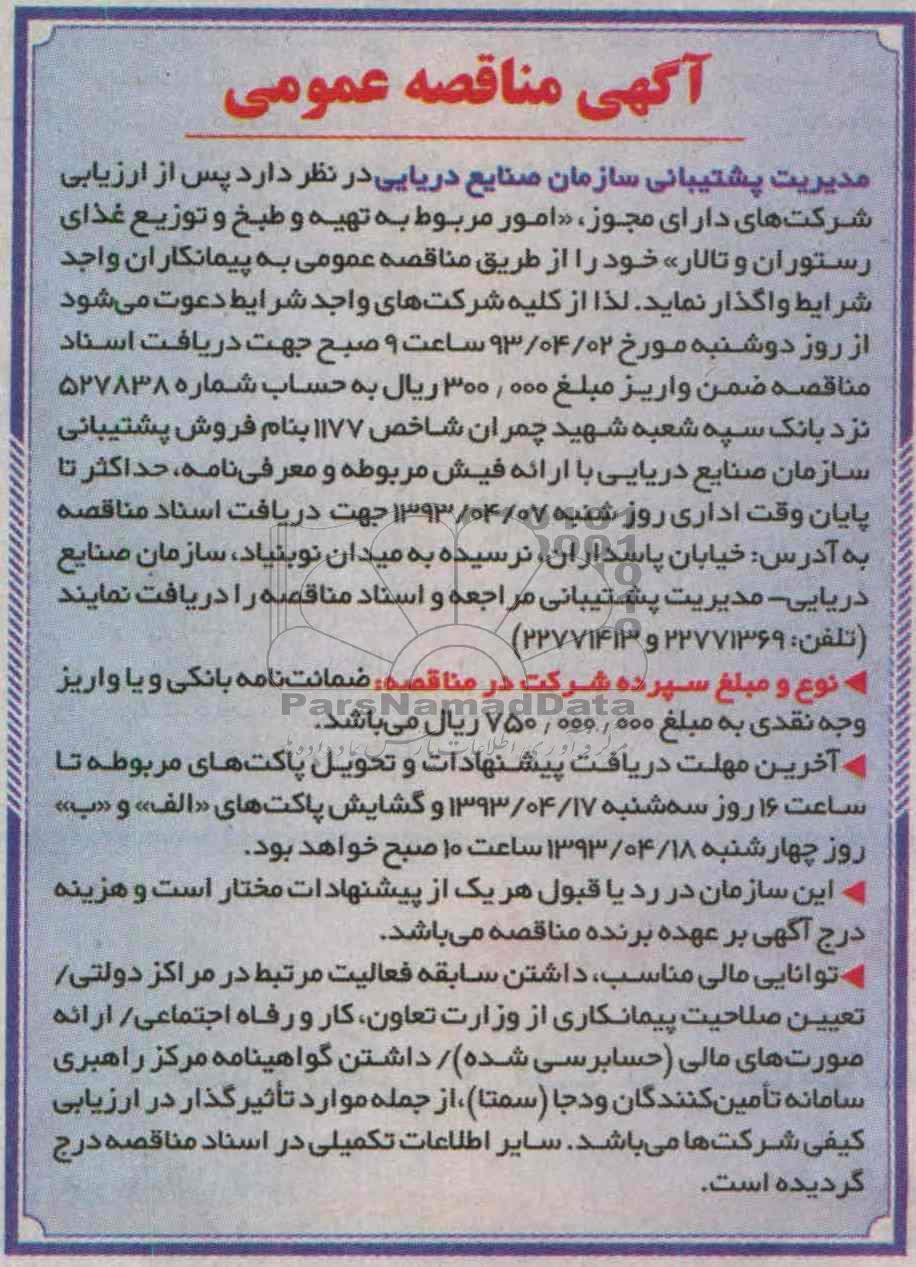 آگهی مناقصه عمومی
مدیریت پشتیبانی سازمان صنایع دریایی در نظر دارد پس از ارزیابی
شرکت‌های دارای مجوز، «امور مربوط به تهیه و طبخ و توزیع غذای
رستوران و تالار» خود را از طریق مناقصه عمومی به پیمانکاران واجد
شرایط واگذار نماید. لذا از کلیه شرکت‌های واجد شرایط دعوت می‌شود
از روز دوشنبه مورخ ۹۳/۰۴/۰۲ ساعت ۹ صبح جهت دریافت اسناد
مناقصه ضمن واریز مبلغ ۳۰۰٫۰۰۰ ریال به حساب شماره ۵۲۷۸۳۸
نزد بانک سپه شعبه شهید چمران شاخص ۱۱۷۷ بنام فروش پشتیبانی
سازمان صنایع دریایی با ارائه فیش مربوطه و معرفی‌نامه، حداکثر تا
پایان وقت اداری روز شنبه ۱۳۹۳/۰۴/۰۷ جهت دریافت اسناد مناقصه
به آدرس: خیابان پاسداران، نرسیده به میدان نوبنیاد، سازمان صنایع
دریایی– مدیریت پشتیبانی مراجعه و اسناد مناقصه را دریافت نمایند
(تلفن: ۲۲۷۷۱۳۶۹ و ۲۲۷۷۱۴۱۳)
◄ نوع و مبلغ سپرده شرکت در مناقصه: ضمانت‌نامه بانکی و یا واریز
ParsNamadData
وجه نقدی به مبلغ ۷۵۰٫۰۰۰٫۰۰۰ ریال می‌باشد.
◄ آخرین مهلت دریافت پیشنهادات و تحویل پاکت‌های مربوطه تا
ساعت ۱۶ روز سه‌شنبه ۱۳۹۳/۰۴/۱۷ و گشایش پاکت‌های «الف» و «ب»
روز چهارشنبه ۱۳۹۳/۰۴/۱۸ ساعت ۱۰ صبح خواهد بود.
◄ این سازمان در رد یا قبول هر یک از پیشنهادات مختار است و هزینه
درج آگهی بر عهده برنده مناقصه می‌باشد.
◄ توانایی مالی مناسب، داشتن سابقه فعالیت مرتبط در مراکز دولتی/
تعیین صلاحیت پیمانکاری از وزارت تعاون، کار و رفاه اجتماعی/ ارائه
صورت‌های مالی (حسابرسی شده)/ داشتن گواهینامه مرکز راهبری
سامانه تأمین‌کنندگان ودجا (سمتا)، از جمله موارد تأثیرگذار در ارزیابی
کیفی شرکت‌ها می‌باشد. سایر اطلاعات تکمیلی در اسناد مناقصه درج
گردیده است.